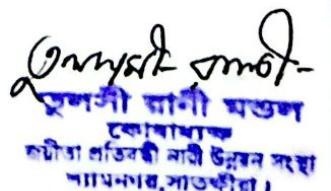 তুলসী রানী মন্ডল
কোষাধ্যক্ষ
জয়ীতা প্রতিবন্ধী নারী উন্নয়ন সংস্থা
শ্যামনগর, সাতক্ষীরা।